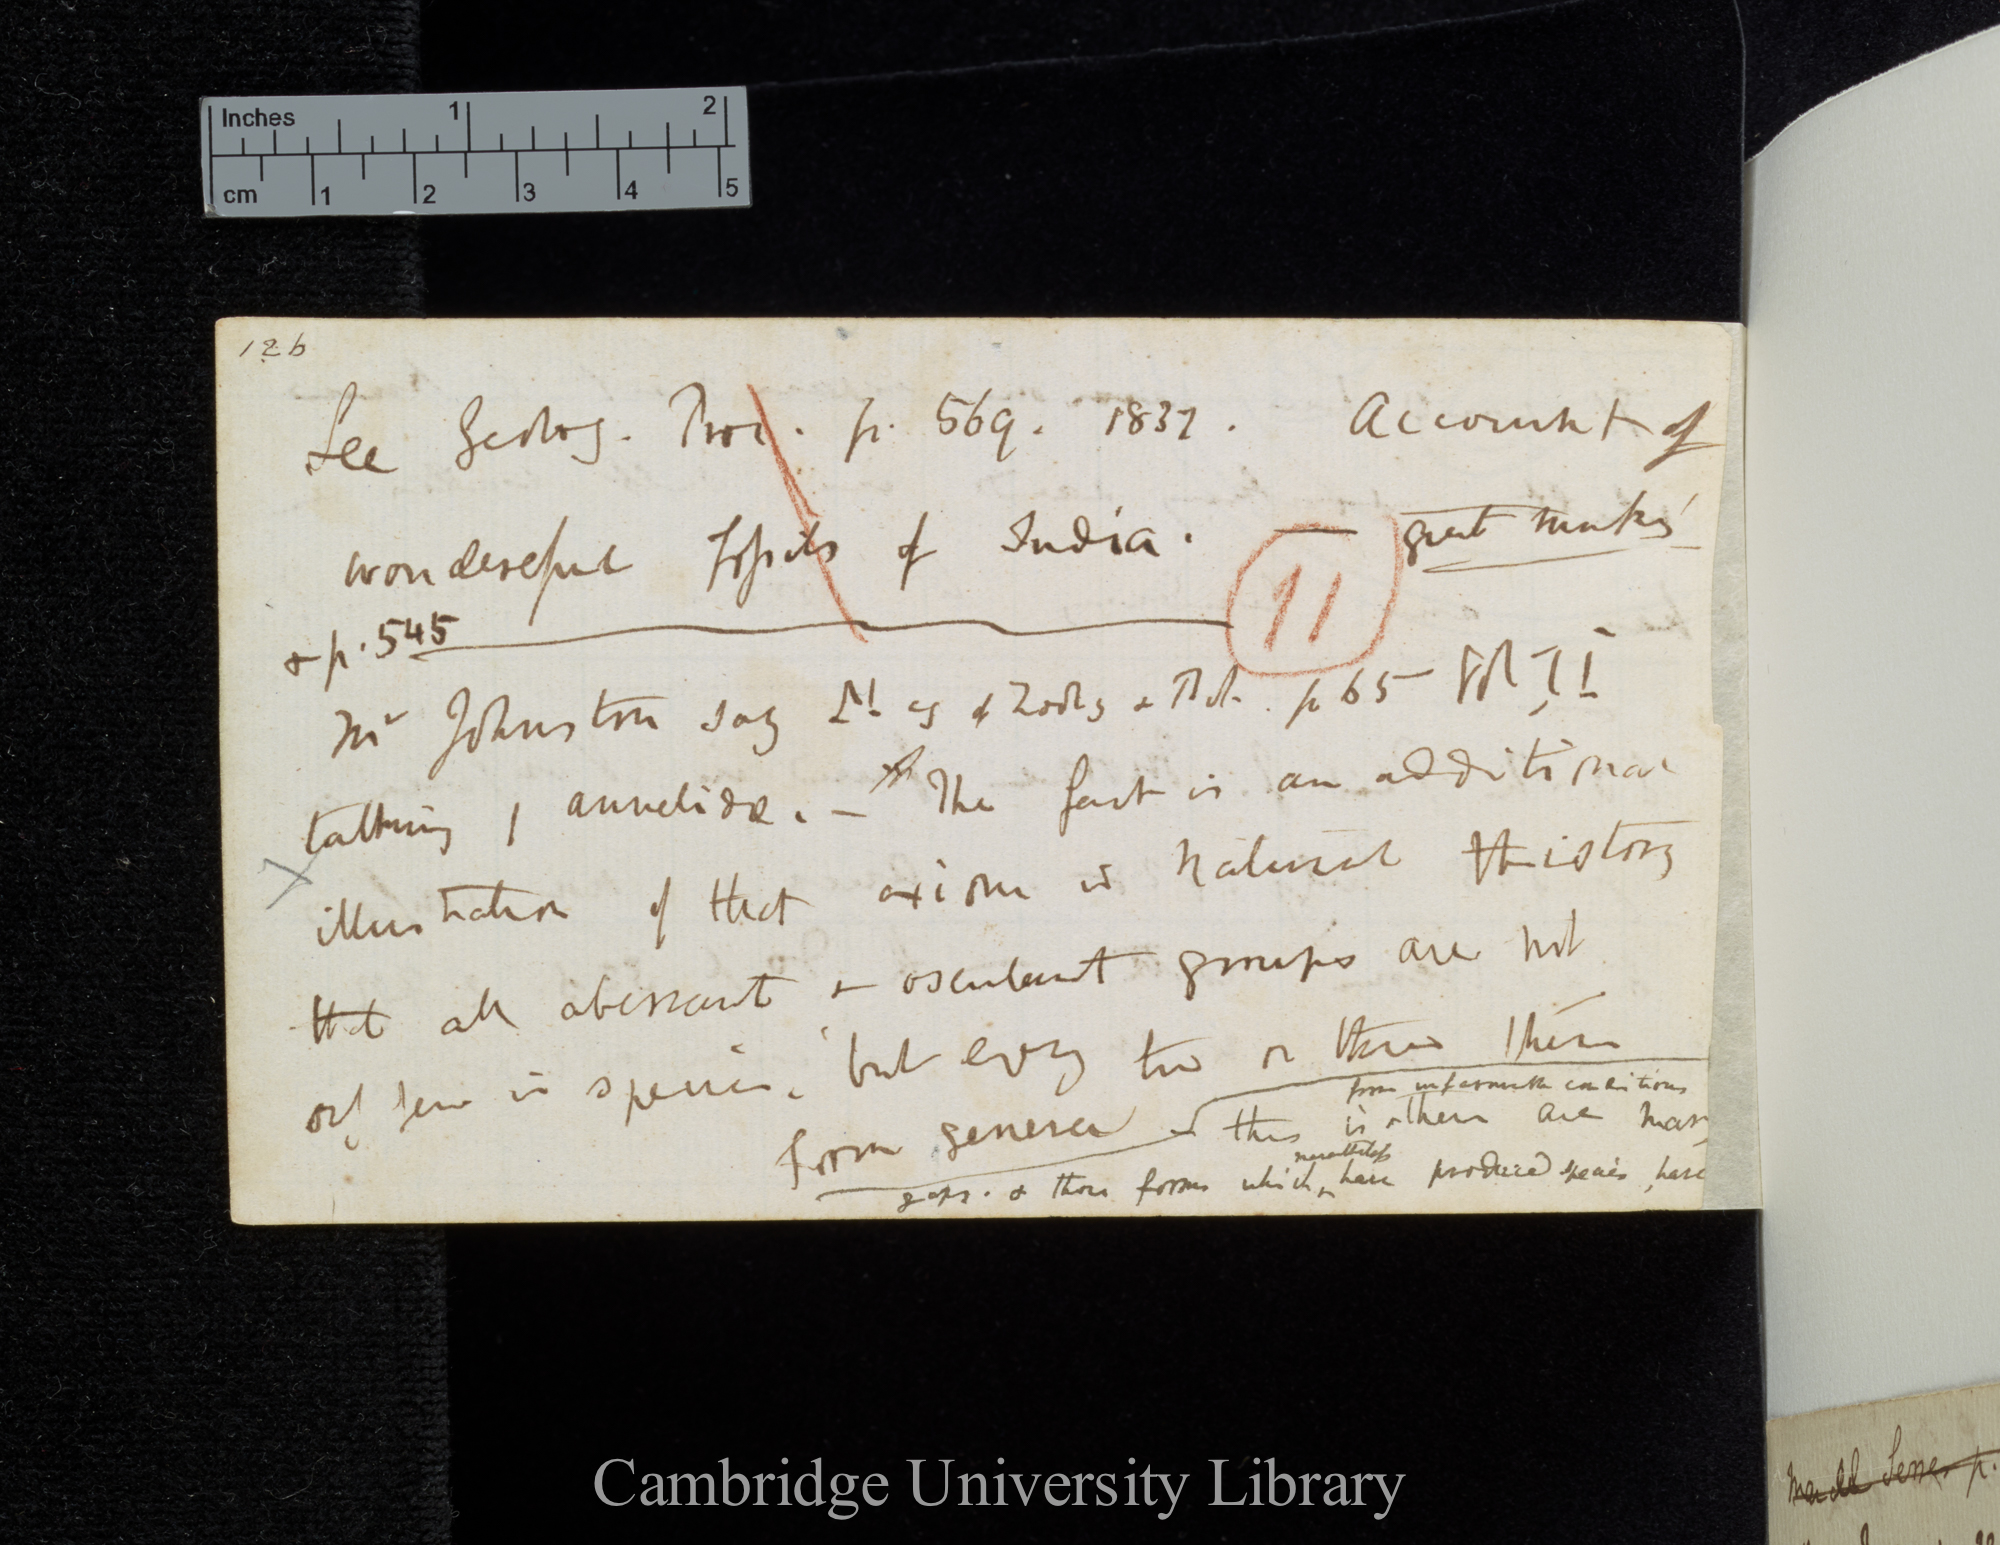 Inches 1 2
cm 1 2 3 4 5
126
See Geolog. Proc. p. 569. 1837. Account of
wonderful fossils of India. — great monkey
& p. 545
11
Mr Johnston say Mag of Zoolog & Bot. p 65 Vol II
talking of annelidæ. — The fact is an additional
illustration of that axiom in natural history
that all aberrant & osculant groups are not
only few in species, but every two or three them
form genera
from unfavourable conditions
this is & there are many
nevertheless
gaps. & those forms which, have produced species, have
Cambridge University Library
Marcel Serres p.